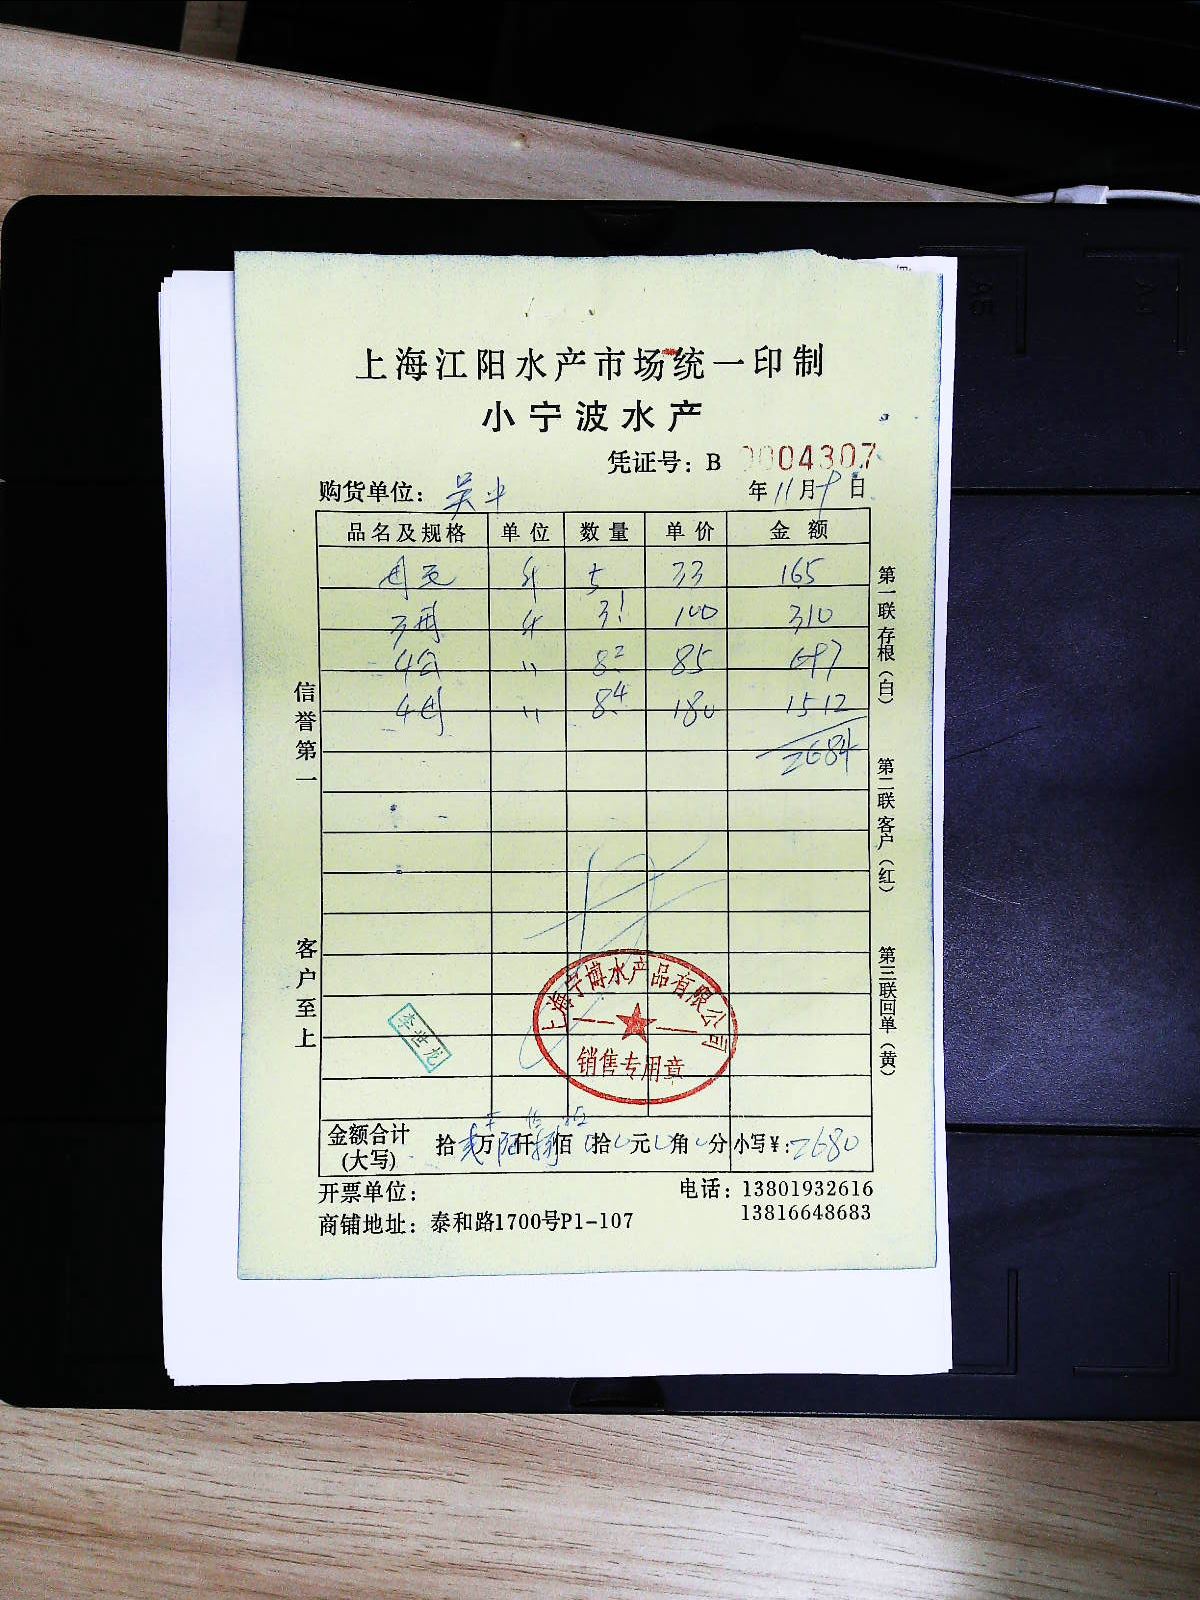 上海江阳水产市场统一印制
小宁波水产
凭证号：B 0004307
购货单位：吴
年11月9日
品名及规格 单位 数量 单价 金额
斤 5 33 165
3母 斤 3.1 100 310
4公 〃 8.2 85 697
4母 〃 8.4 180 1512
2684
信誉第一
客户至上
第一联 存根（白）
第二联 客户（红）
第三联 回单（黄）
李世龙
上海宁博水产品有限公司
销售专用章
金额合计（大写） 拾 万 仟 佰 拾 元 角 分 小写￥：2680
开票单位：
电话：13801932616
13816648683
商铺地址：泰和路1700号P1-107
A5